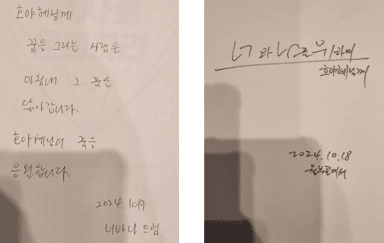 호야혜님께
꿈을 그리는 사람은
마침내 그 꿈을
닮아갑니다.
호야혜님의 꿈을
응원합니다.
2024. 10월
드림.
너와 나를 위하여
호야혜님께
2024. 10. 18
에서